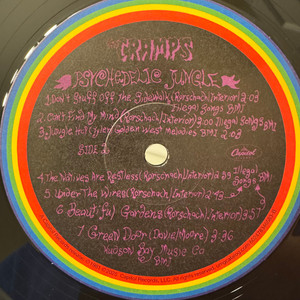 THE CRAMPS
PSYCHEDELIC JUNGLE
1. Don't Eat Stuff Off The Sidewalk (Rorschach/Interior) 2:03
Illegal Songs BMI
2. Can't Find My Mind (Rorschach/Interior) 3:00 Illegal Songs BMI
3. Jungle Hop (Tyler) Golden West Melodies BMI 2:03
SIDE
Capitol
4. The Natives Are Restless (Rorschach/Interior) 2:59 Illegal Songs BMI
5. Under The Wires (Rorschach/Interior) 2:43
6. Beautiful Gardens (Rorschach/Interior) 3:57
7. Green Door (Davie/Moore) 2:36
Hudson Bay Music Co
BMI
Capitol Records, LLC. All rights reserved.